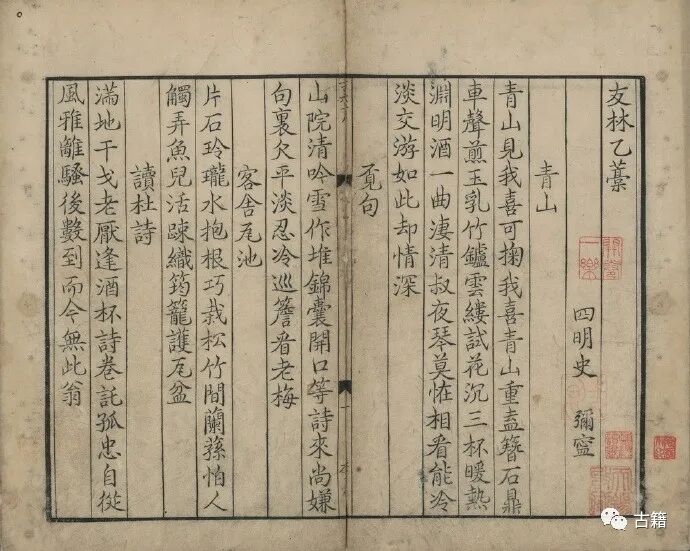 友林乙藁
四明史　彌寧
青山
青山見我喜可掬我喜青山重盍簪石鼎
車聲煎玉乳竹鑪雲縷試花沉三杯暖熱
淵明酒一曲淒清叔夜琴莫怪相看能冷
淡交游如此却情深
覓句
山院清吟雪作堆錦囊開口等詩來尚嫌
句裏欠平淡忍冷巡簷看老梅
客舍瓦池
片石玲瓏水抱根巧栽松竹間蘭蓀怕人
觸弄魚兒活踈織筠籠護瓦盆
讀杜詩
滿地干戈老厭逢酒杯詩卷託孤忠自從
風雅離騷後數到而今無此翁
古籍